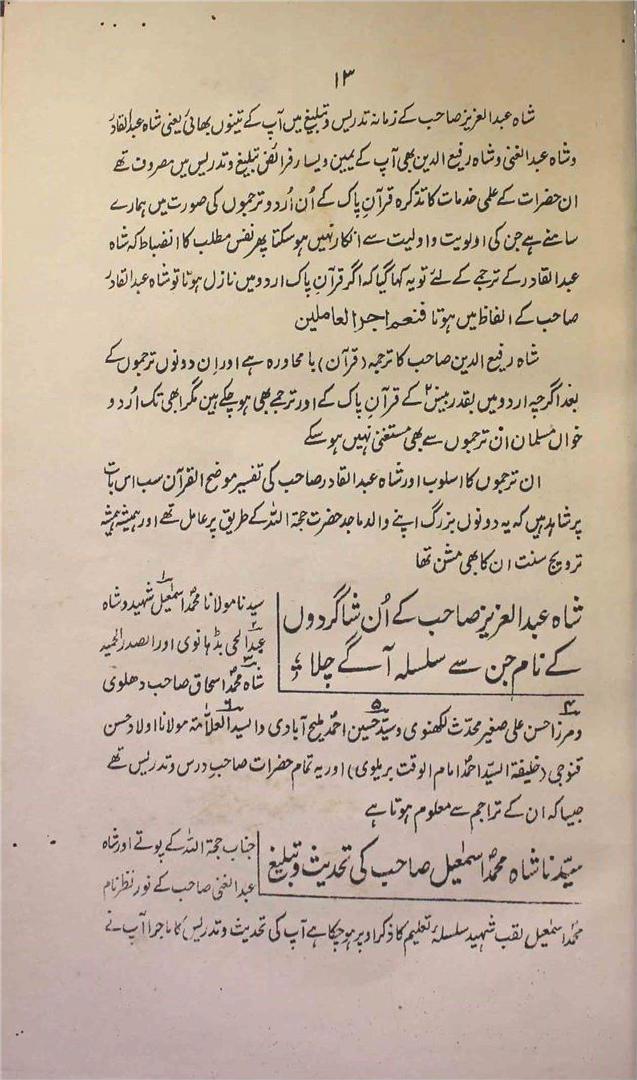 ۱۳
شاہ عبدالعزیز صاحب کے زمانہ تدریس وتبلیغ میں آپ کے تینوں بھائی یعنی شاہ عبدالقادر
وشاہ عبدالغنی وشاہ رفیع الدین بھی آپ کے یمین ویسار فرائض تبلیغ وتدریس میں مصروف تھے
ان حضرات کے علمی خدمات کا تذکرہ قرآن پاک کے اُن اُردو ترجموں کی صورت میں ہمارے
سامنے ہے جن کی اولویت و اولیت سے انکار نہیں ہوسکتا پھر نفس مطلب کا انضباط کہ شاہ
عبدالقادر کے ترجمے کے لئے تو یہ کہا گیا کہ اگر قرآن پاک اردو میں نازل ہوتا تو شاہ عبدالقادر
صاحب کے الفاظ میں ہوتا فنعم اجر العاملین
شاہ رفیع الدین صاحب کا ترجمہ (قرآن) با محاورہ ہے اور اِن دونوں ترجموں کے
بعد اگرچہ اردو میں بقدر بیس ۲۰ کے قرآن پاک کے اور ترجمے بھی ہوچکے ہین مگر ابھی تک اُردو
خوان مسلمان ان ترجموں سے بھی مستغنی نہیں ہوسکے
ان ترجموں کا اسلوب اور شاہ عبدالقادر صاحب کی تفسیر موضح القرآن سب اس بات
پر شاہد ہیں کہ یہ دونوں بزرگ اپنے والد ماجد حضرت حجۃ اللہ کے طریق پر عامل تھے اور ہمیشہ ہمیشہ
ترویج سنت ان کا بھی مشن تھا
شاہ عبدالعزیز صاحب کے اُن شاگردوں
کے نام جن سے سلسلہ آگے چلا
سیدنا مولانا محمد اسمٰعیل شہید ۱ وشاہ
عبدالحی بڈہانوی ۲ اور الصدر الحمید
شاہ محمد اسحاق ۳ صاحب دھلوی
ومرزا حسن علی صغیر محدث لکھنوی ۴ وسید حسین احمد ملیح آبادی ۵ والسید العلامۃ مولانا اولاد حسن ۶
قنوجی (خلیفۃ السید احمد امام الوقت بریلوی) اور یہ تمام حضرات صاحب درس وتدریس تھے
جیسا کہ ان کے تراجم سے معلوم ہوتا ہے
سیّدنا شاہ محمد اسمٰعیل صاحب کی تحدیث وتبلیغ
جناب حجۃ اللہ کے پوتے اور شاہ
عبدالغنی صاحب کے نور نظر نام
محمد اسمٰعیل لقب شہید سلسلہ تعلیم کا ذکر اوپر ہوچکا ہے آپ کی تحدیث وتدریس کا ماجرا آپ نے